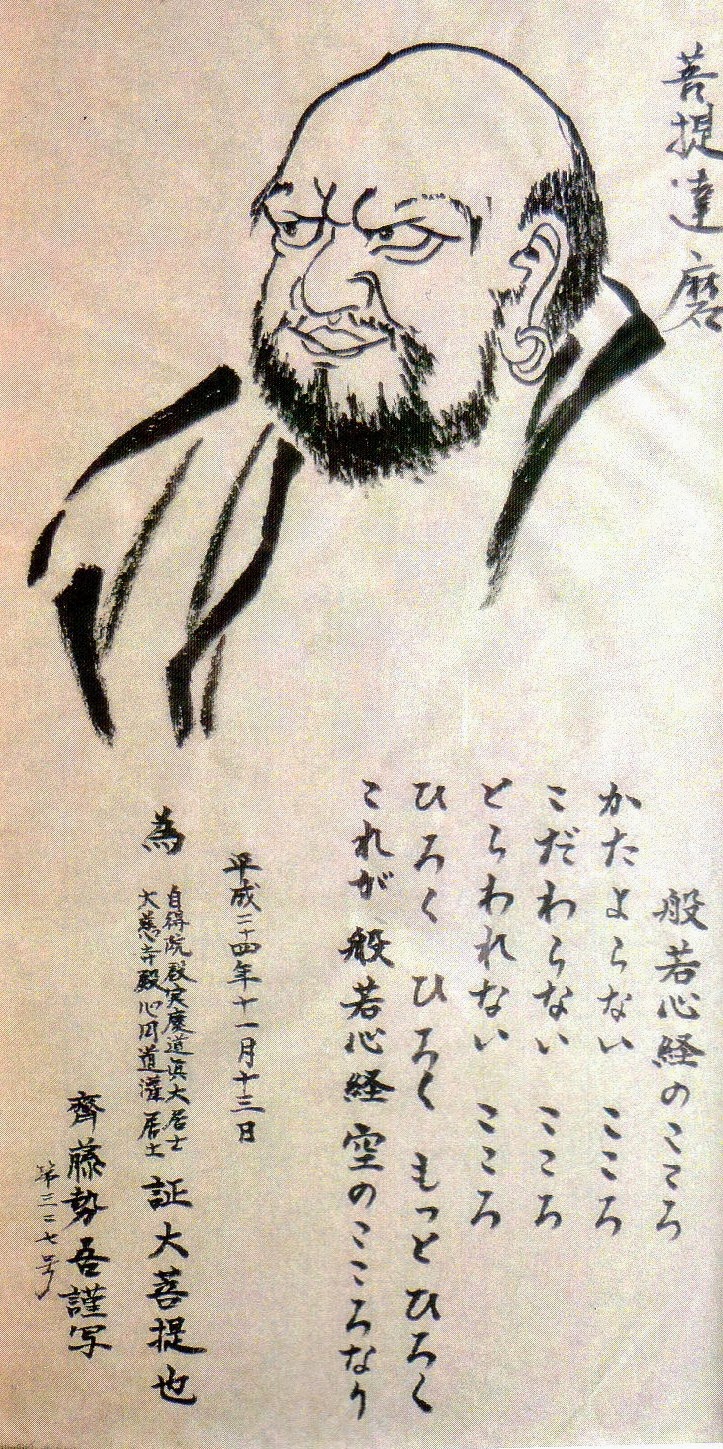 菩提達磨
般若心経のこころ
かたよらない こころ
こだわらない こころ
とらわれない こころ
ひろく ひろく もっとひろく
これが 般若心経 空のこころなり
平成二十四年十一月十三日
為 自得院殿実慶道真大居士
大慈寺殿心円道潅居士 証大菩提也
齊藤勢吾謹写
第三二七号